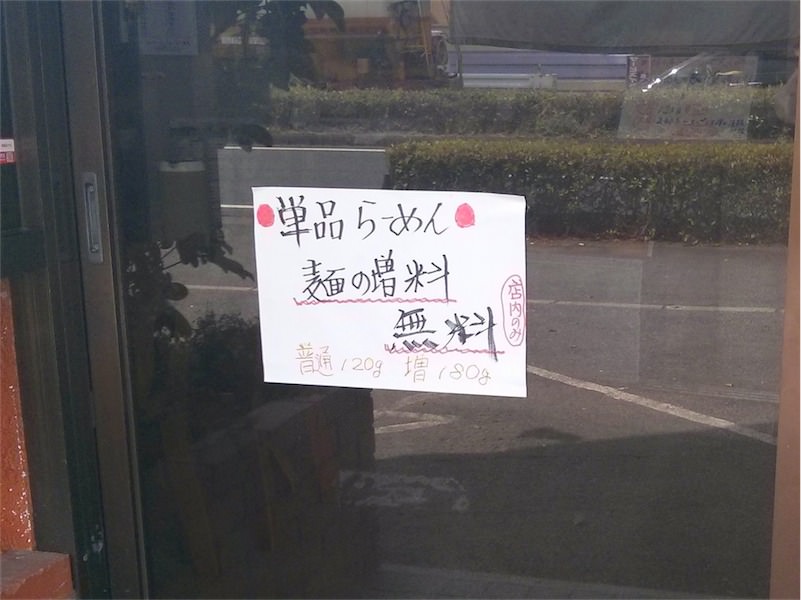 単品らーめん
麺の増料
無料
店内のみ
普通120g 増180g